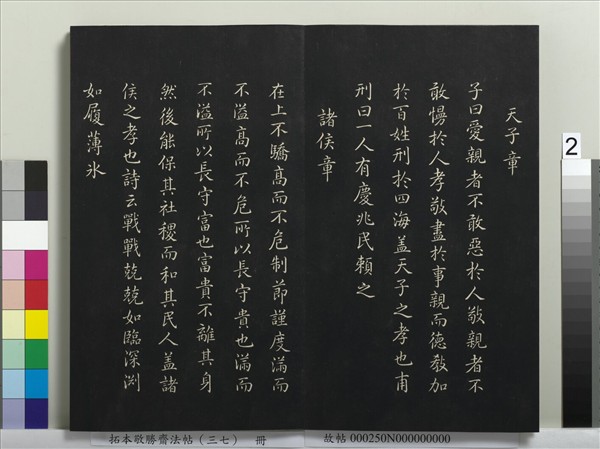 天子章
子曰愛親者不敢惡於人敬親者不
敢慢於人孝敬盡於事親而德教加
於百姓刑於四海盖天子之孝也甫
刑曰一人有慶兆民賴之
諸侯章
在上不驕高而不危制節謹度滿而
不溢高而不危所以長守貴也滿而
不溢所以長守富也富貴不離其身
然後能保其社稷而和其民人盖諸
侯之孝也詩云戰戰兢兢如臨深渊
如履薄冰
2
拓本敬勝齋法帖（三七） 冊
故帖 000250N000000000